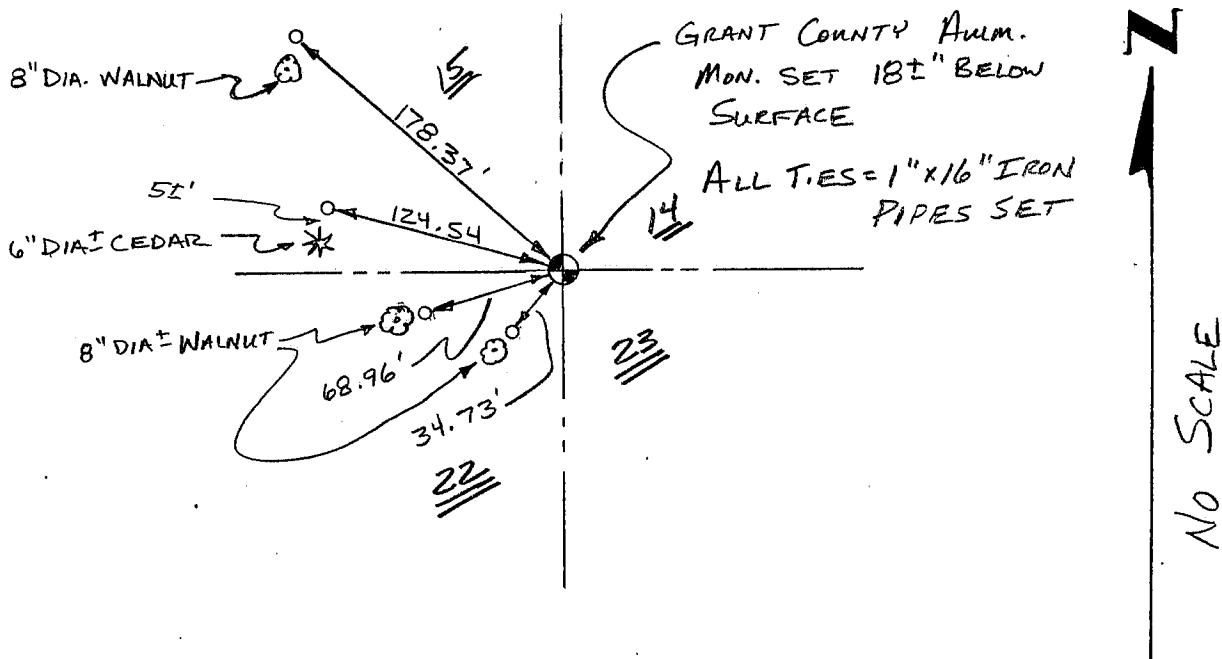 8" DIA. WALNUT
15
GRANT COUNTY ALUM.
MON. SET 18±" BELOW
SURFACE
N
178.37'
ALL TIES = 1" x 16" IRON
PIPES SET
5±'
124.54
14
6" DIA± CEDAR
8" DIA± WALNUT
68.96'
34.73'
23
22
NO SCALE